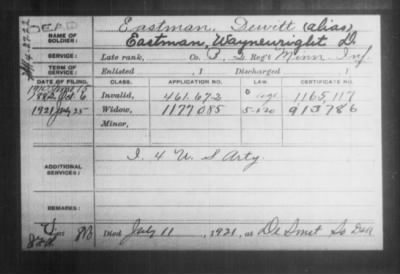 NAME OF SOLDIER: Eastman, Dewitt (alias)
Eastman, Waynewright D.
SERVICE: Late rank, Co. F, 2 Reg't Minn Inf
TERM OF SERVICE: Enlisted , 1 Discharged , 1
DATE OF FILING. CLASS. APPLICATION NO. LAW. CERTIFICATE NO.
1882 Oct 6 Invalid, 461.672 1165,117
1921 July 25 Widow, 1177085 5-1-20 913,786
Minor,
ADDITIONAL SERVICES: I. 4 U S Arty.
REMARKS:
Died July 11, 1921, at De Smet So Dak